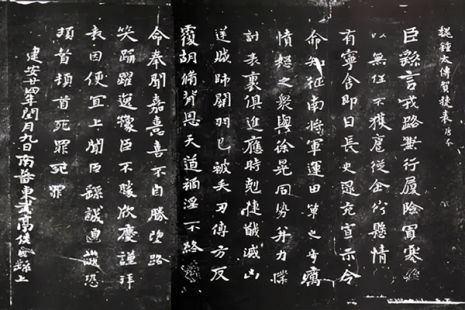 魏鍾太傅賀捷表
臣繇言戎路兼行履險冒寒臣
以無任不獲扈從企佇懸情
無有寧舍即日長史逯充宣示令
命知征南將軍運田單之奇厲
憤怒之眾與徐晃同勢并力撲
討表裏俱進應時剋捷馘滅凶
逆賊帥關羽已被矢刃傅方反
覆胡脩背恩天道禍淫不終
命奉聞嘉憙喜不自勝望路
笑踊躍逸豫臣不勝欣慶謹拜
表因便宜上聞臣繇誠惶誠恐
頓首頓首死罪死罪
建安廿四年閏月九日南蕃東武亭侯臣繇上